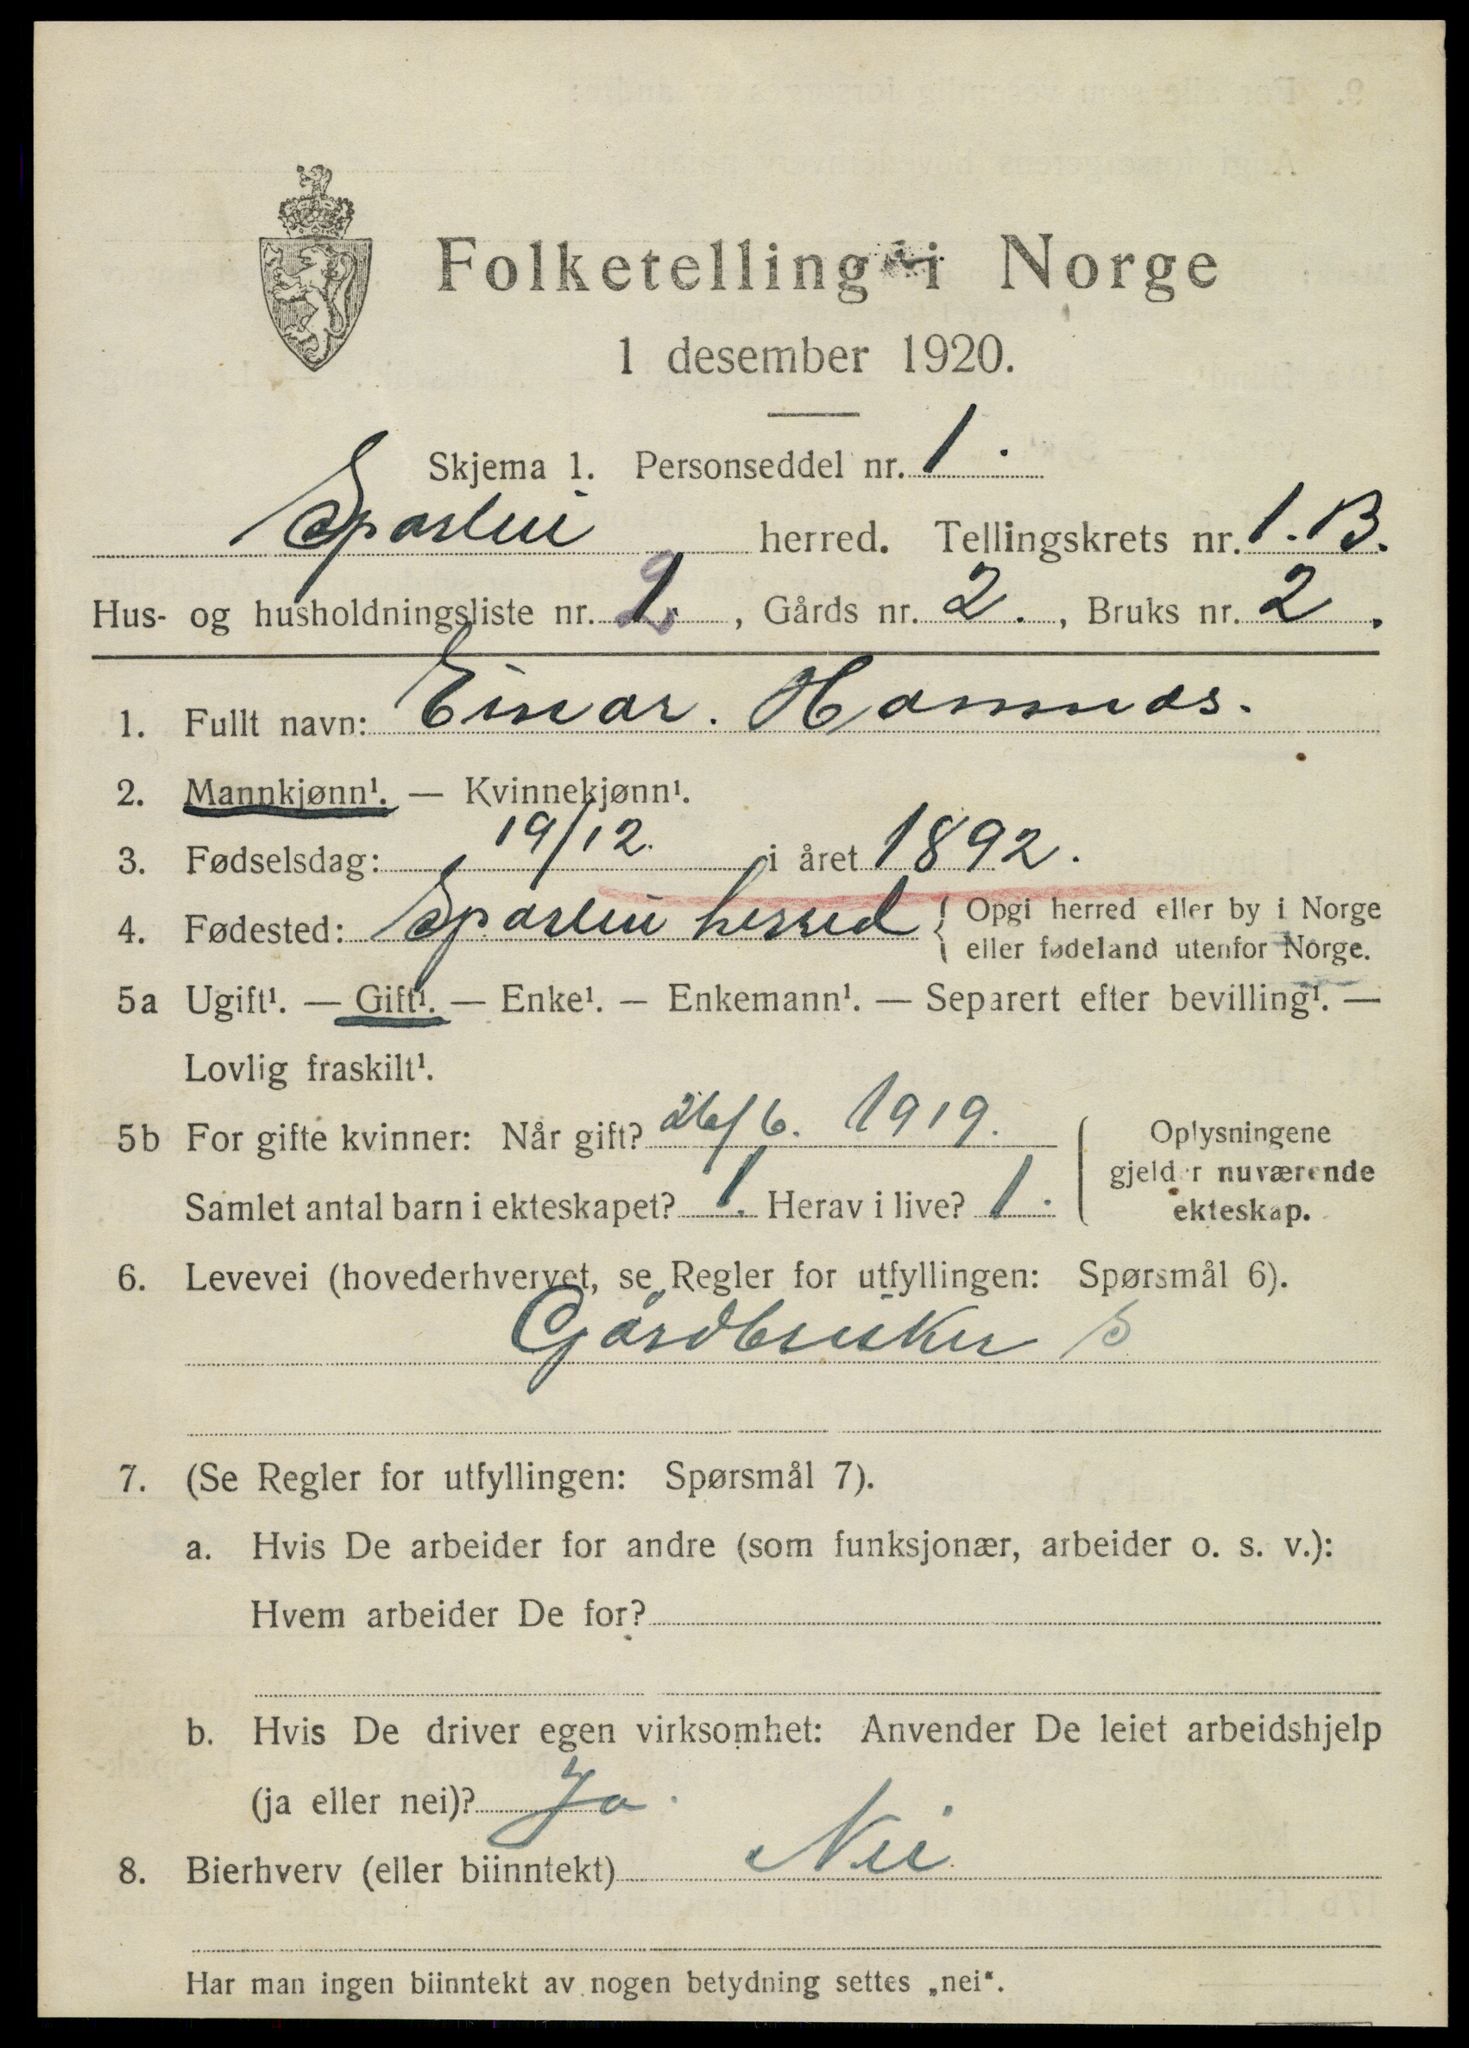 Folketelling i Norge
1 desember 1920.
Skjema 1. Personseddel nr. 1.
Sparbu herred. Tellingskrets nr. 1. B.
Hus- og husholdningsliste nr. 2, Gårds nr. 2., Bruks nr. 2.
1. Fullt navn: Einar. Hamnes.
2. Mannkjønn¹. — Kvinnekjønn¹.
3. Fødselsdag: 19/12. i året 1892.
4. Fødested: Sparbu herred { Opgi herred eller by i Norge
eller fødeland utenfor Norge.
5a Ugift¹. — Gift¹. — Enke¹. — Enkemann¹. — Separert efter bevilling¹. —
Lovlig fraskilt¹.
5b For gifte kvinner: Når gift? 26/6. 1919.
Samlet antal barn i ekteskapet? 1. Herav i live? 1.
Oplysningene
gjelder nuværende
ekteskap.
6. Levevei (hovederhvervet, se Regler for utfyllingen: Spørsmål 6).
Gårdbruker S
7. (Se Regler for utfyllingen: Spørsmål 7).
a. Hvis De arbeider for andre (som funksjonær, arbeider o. s. v.):
Hvem arbeider De for?
b. Hvis De driver egen virksomhet: Anvender De leiet arbeidshjelp
(ja eller nei)? Ja.
8. Bierhverv (eller biinntekt) Nei
Har man ingen biinntekt av nogen betydning settes „nei“.